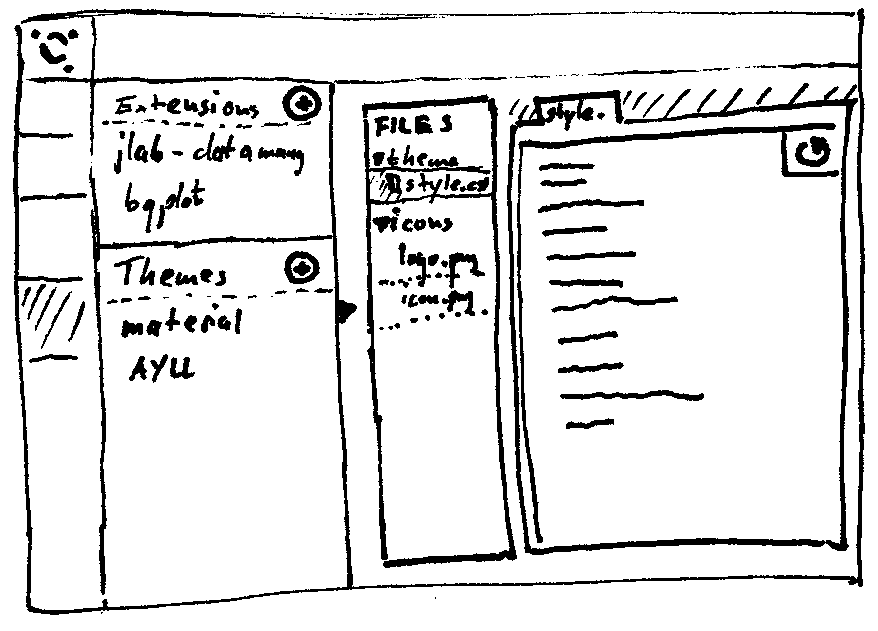 Extensions
jlab - datamany
bqplot
Themes
material
AYU
FILES
theme
style.css
icons
logo.png
icon.png
style.